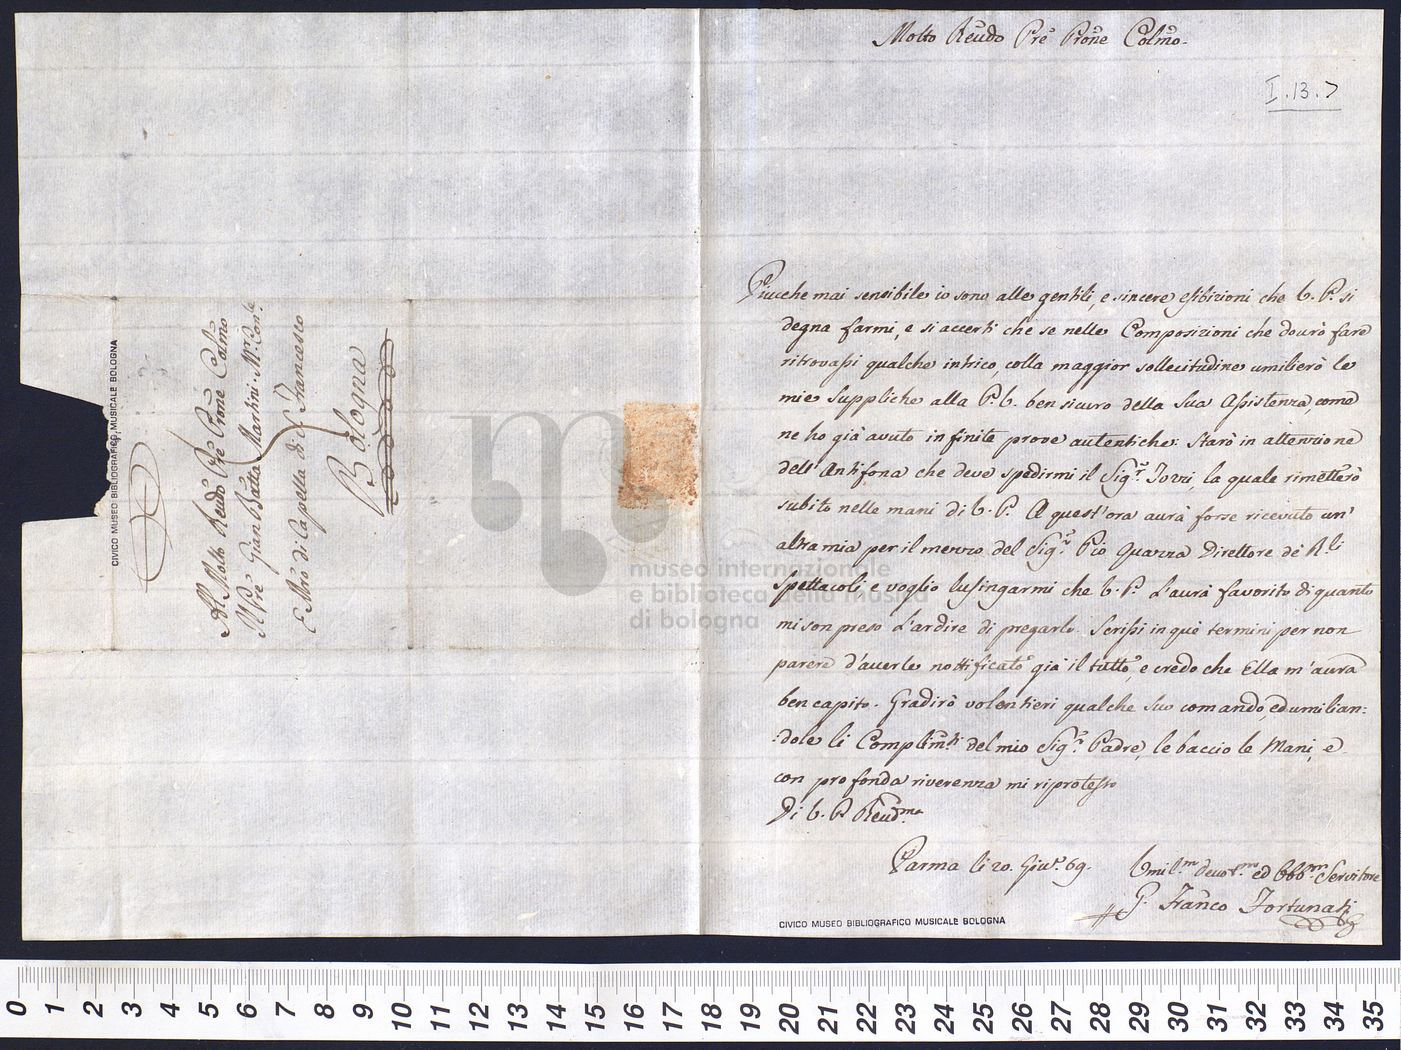 Molto Reudo Pre Prone Colmo.
I.13.7
Piucche mai sensibile io sono alle gentili, e sincere esibizioni che V. P. si
degna farmi, e si accerti che se nelle Composizioni che dourò fare
ritrovassi qualche intrico, colla maggior sollecitudine umilierò le
mie suppliche alla P. V. ben sicuro della sua Assistenza, come
ne ho già avuto infinite prove autentiche. Starò in attenzione
dell'Antifona che deve spedirmi il Sigr. Jozzi, la quale rimetterò
subito nelle mani di V. P. A quest'ora aurà forse ricevuto un'
altra mia per il mezzo del Sigr. Pio Quazza Direttore de' R.li
Spettacoli, e voglio lusingarmi che V. P. l'aurà favorito di quanto
mi son preso l'ardire di pregarla. Scrissi in que' termini per non
parere d'averle nottificato già il tutto, e credo che Ella m'aurà
ben capito. Gradirò volentieri qualche suo comando, ed umilian:
:dole li Complimti del mio Sigr. Padre, le baccio le Mani, e
con profonda riverenza mi riprotesto
Di V. P. Reudma
Parma li 20. Giu. 69.
Umilm. devotm. ed Obbmo. Servitore
G. Franco Fortunati
CIVICO MUSEO BIBLIOGRAFICO MUSICALE BOLOGNA
Al Molto Reudo Pre Prone Colmo
Il Pre Gian Batta Martini. Mr. Con.le
E Mro di Capella di S. Francesco
Bologna
CIVICO MUSEO BIBLIOGRAFICO MUSICALE BOLOGNA
museo internazionale
e biblioteca della musica
di bologna
0 1 2 3 4 5 6 7 8 9 10 11 12 13 14 15 16 17 18 19 20 21 22 23 24 25 26 27 28 29 30 31 32 33 34 35